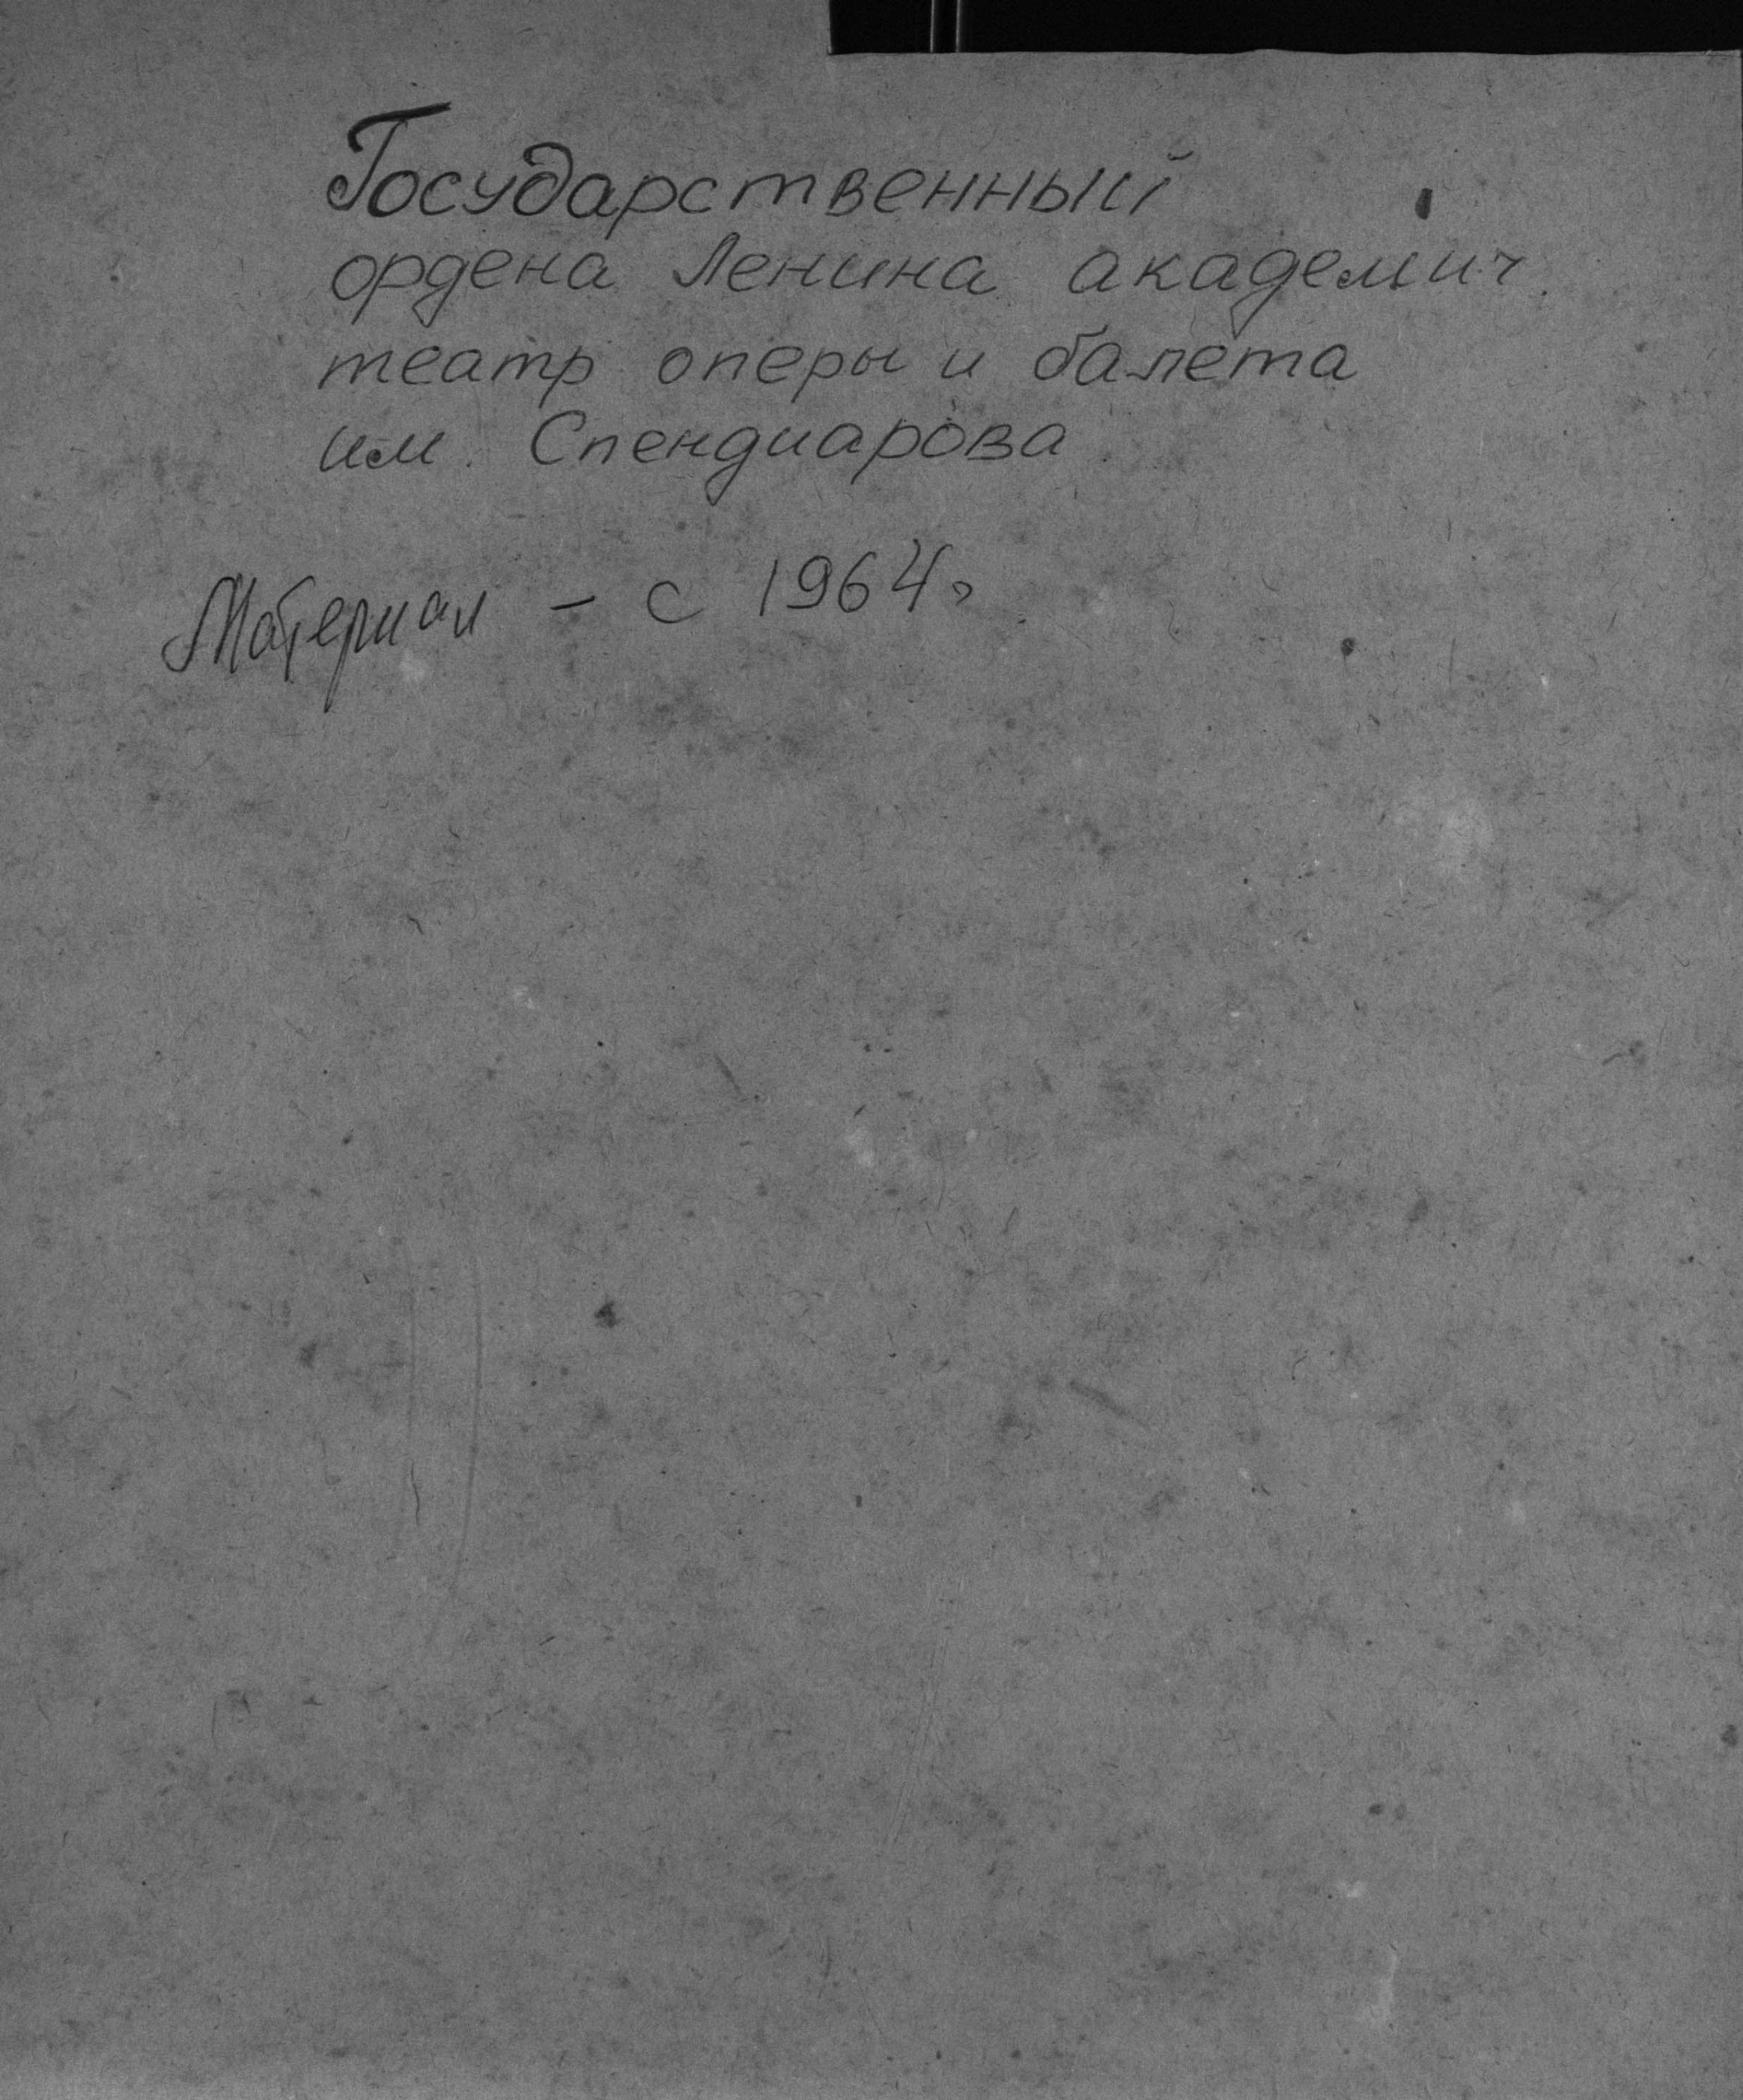 Государственный
ордена Ленина академич.
театр оперы и балета
им. Спендиарова
Материал - с 1964г